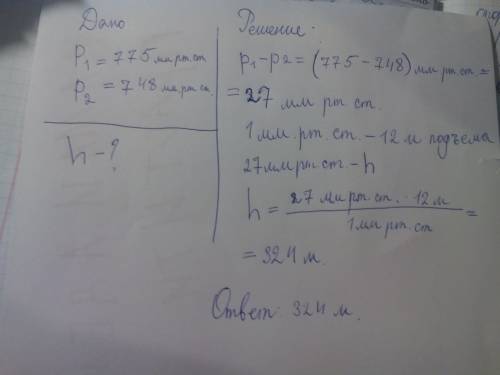 Дано
P₁ = 775 мм рт. ст.
P₂ = 748 мм рт. ст.
h - ?
Решение:
p₁ - p₂ = (775 - 748) мм рт. ст. =
= 27 мм рт. ст.
1 мм. рт. ст. - 12 м подъема
27 мм рт. ст. - h
h = 27 мм рт. ст. · 12 м / 1 мм рт. ст =
= 324 м.
Ответ: 324 м.